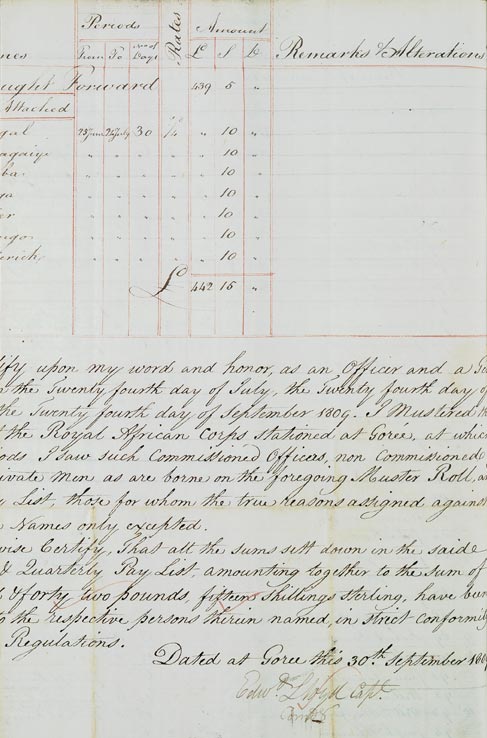 Periods Rates Amount
mes From To No. of Days £ S D Remarks & Alterations
ught Forward 439 5 "
Attached
gal 25 June 24 July 30 /4 " 10 "
" " " " " 10 "
ba " " " " " 10 "
" " " " " 10 "
er " " " " " 10 "
ngo " " " " " 10 "
erick " " " " " 10 "
£ 442 15 "
ify upon my word and honor, as an Officer and a Ge
the Twenty fourth day of July, the Twenty fourth day of
the Twenty fourth day of September 1809. I Mustered th
the Royal African Corps stationed at Gorée, at which
ods I saw such Commissioned Officers, non Commissioned
ivate Men as are borne on the foregoing Muster Roll, an
y List, those for whom the true reasons assigned against
Names only excepted.
wise Certify, That all the sums sett down in the saide
& Quarterly Pay List, amounting together to the sum of
& forty two pounds, fifteen shillings sterling, have been
the respective persons therein named, in strict conformity
Regulations.
Dated at Goree this 30th. September 1809
Edwd. Lloyd Capt.